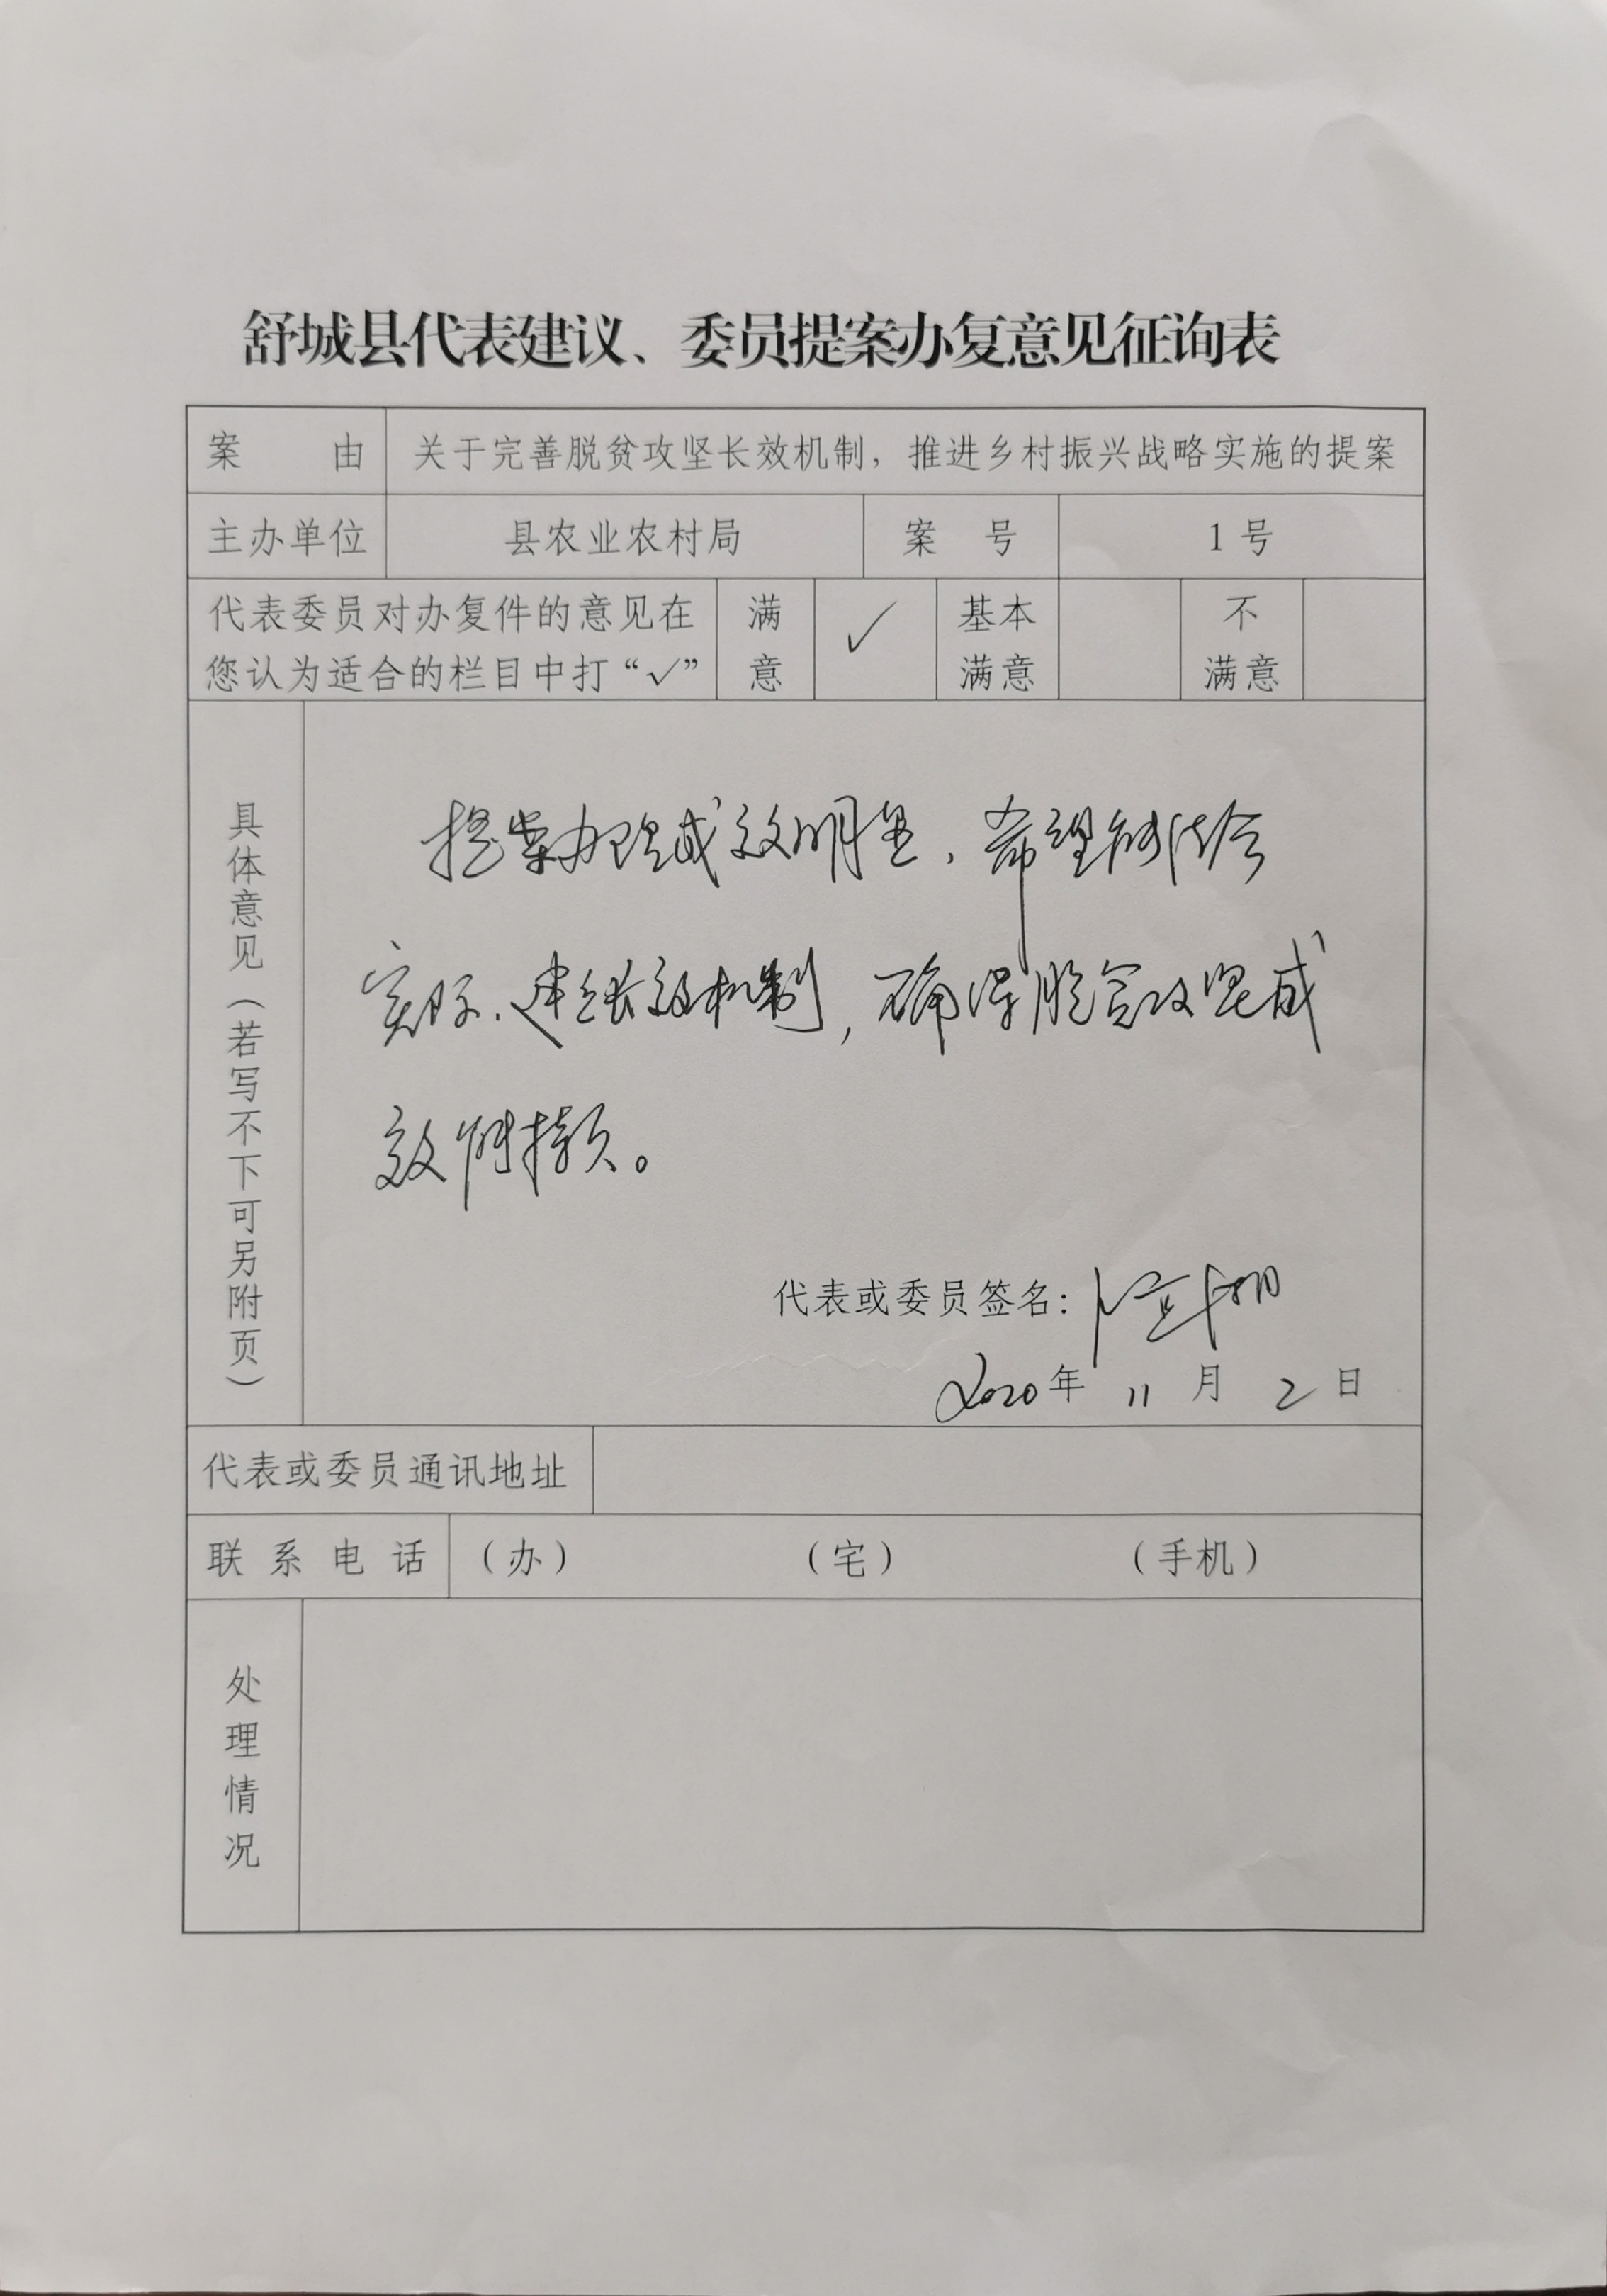 舒城县代表建议、委员提案办复意见征询表
案 由 关于完善脱贫攻坚长效机制，推进乡村振兴战略实施的提案
主办单位 县农业农村局 案 号 1号
代表委员对办复件的意见在您认为适合的栏目中打“√” 满意 ✓ 基本满意 不满意
具体意见（若写不下可另附页）
提案办理成效明显，希望能结合
实际，建立长效机制，确保脱贫攻坚成
效可持续。
代表或委员签名：
2020年 11 月 2 日
代表或委员通讯地址
联系电话 （办） （宅） （手机）
处理情况